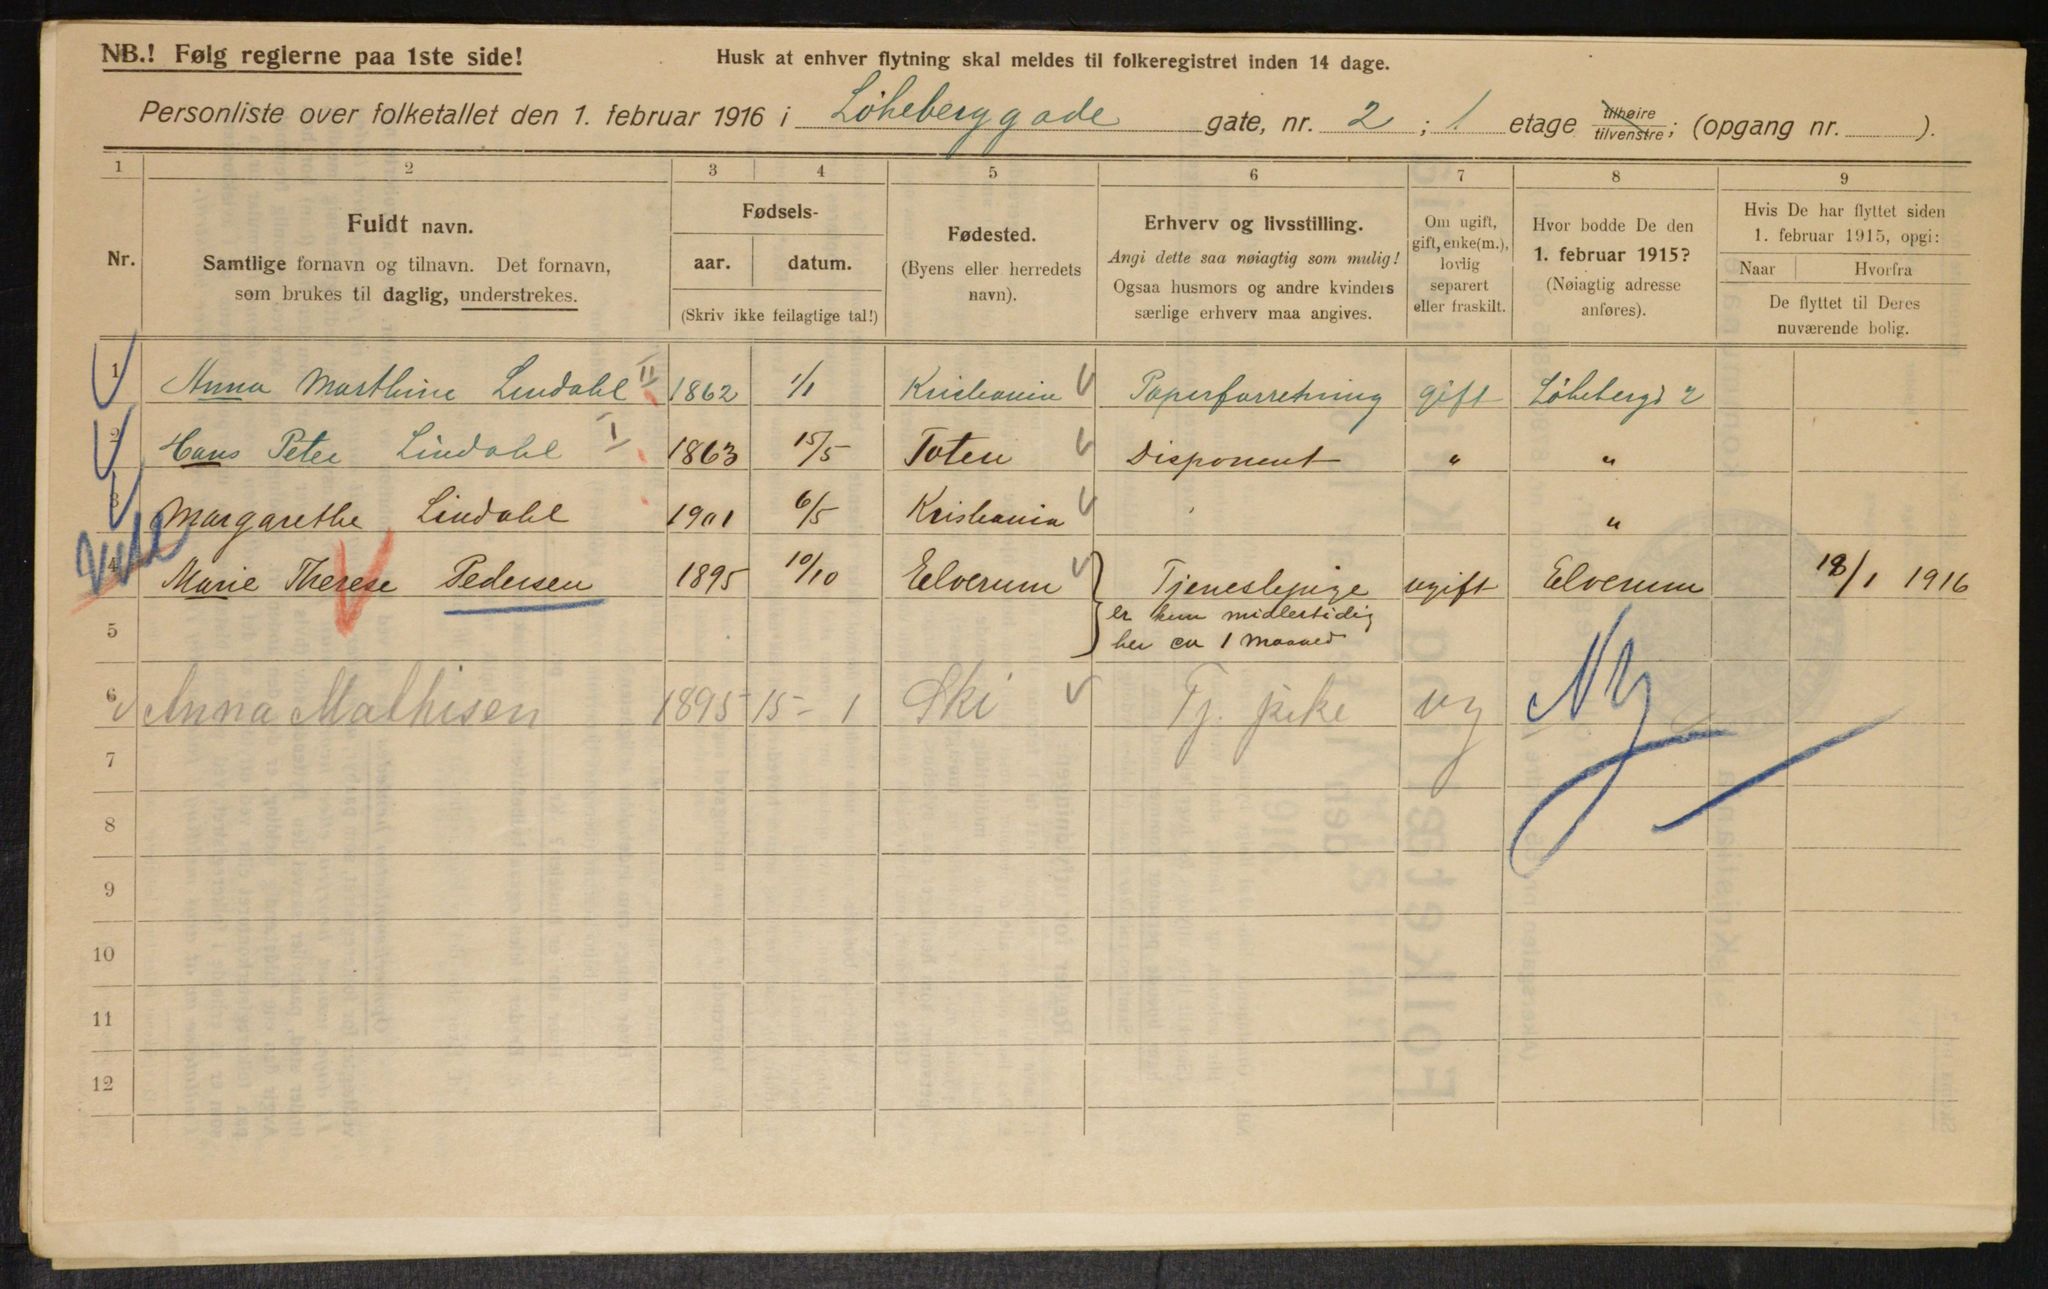 NB.! Følg reglerne paa 1ste side!
Husk at enhver flytning skal meldes til folkeregistret inden 14 dage.
Personliste over folketallet den 1. februar 1916 i Løkeberggade gate, nr. 2 ; 1. etage tilhøire tilvenstre; (opgang nr. ).
1 2 3 4 5 6 7 8 9
Nr.
Fuldt navn.
Samtlige fornavn og tilnavn. Det fornavn,
som brukes til daglig, understrekes.
Fødsels-
aar. datum.
(Skriv ikke feilagtige tal!)
Fødested.
(Byens eller herredets
navn).
Erhverv og livsstilling.
Angi dette saa nøiagtig som mulig!
Ogsaa husmors og andre kvinders
særlige erhverv maa angives.
Om ugift,
gift, enke(m.),
lovlig
separert
eller fraskilt.
Hvor bodde De den
1. februar 1915?
(Nøiagtig adresse
anføres).
Hvis De har flyttet siden
1. februar 1915, opgi:
Naar Hvorfra
De flyttet til Deres
nuværende bolig.
1 Anna Marthine Lindahl II 1862 1/1 Kristiania Papirforretning gift Løkebergg 2
2 Hans Peter Lindahl I 1863 15/5 Toten Disponent " "
3 Margarethe Lindahl 1901 6/5 Kristiania "
4 Marie Therese Pedersen 1895 10/10 Elverum Tjenestepige ugift Elverum 18/1 1916
er kun midlertidig
5 her ca 1 maaned
6 Anna Mathisen 1895 15-1 Ski Tj. pike ug Ny
7
8
9
10
11
12